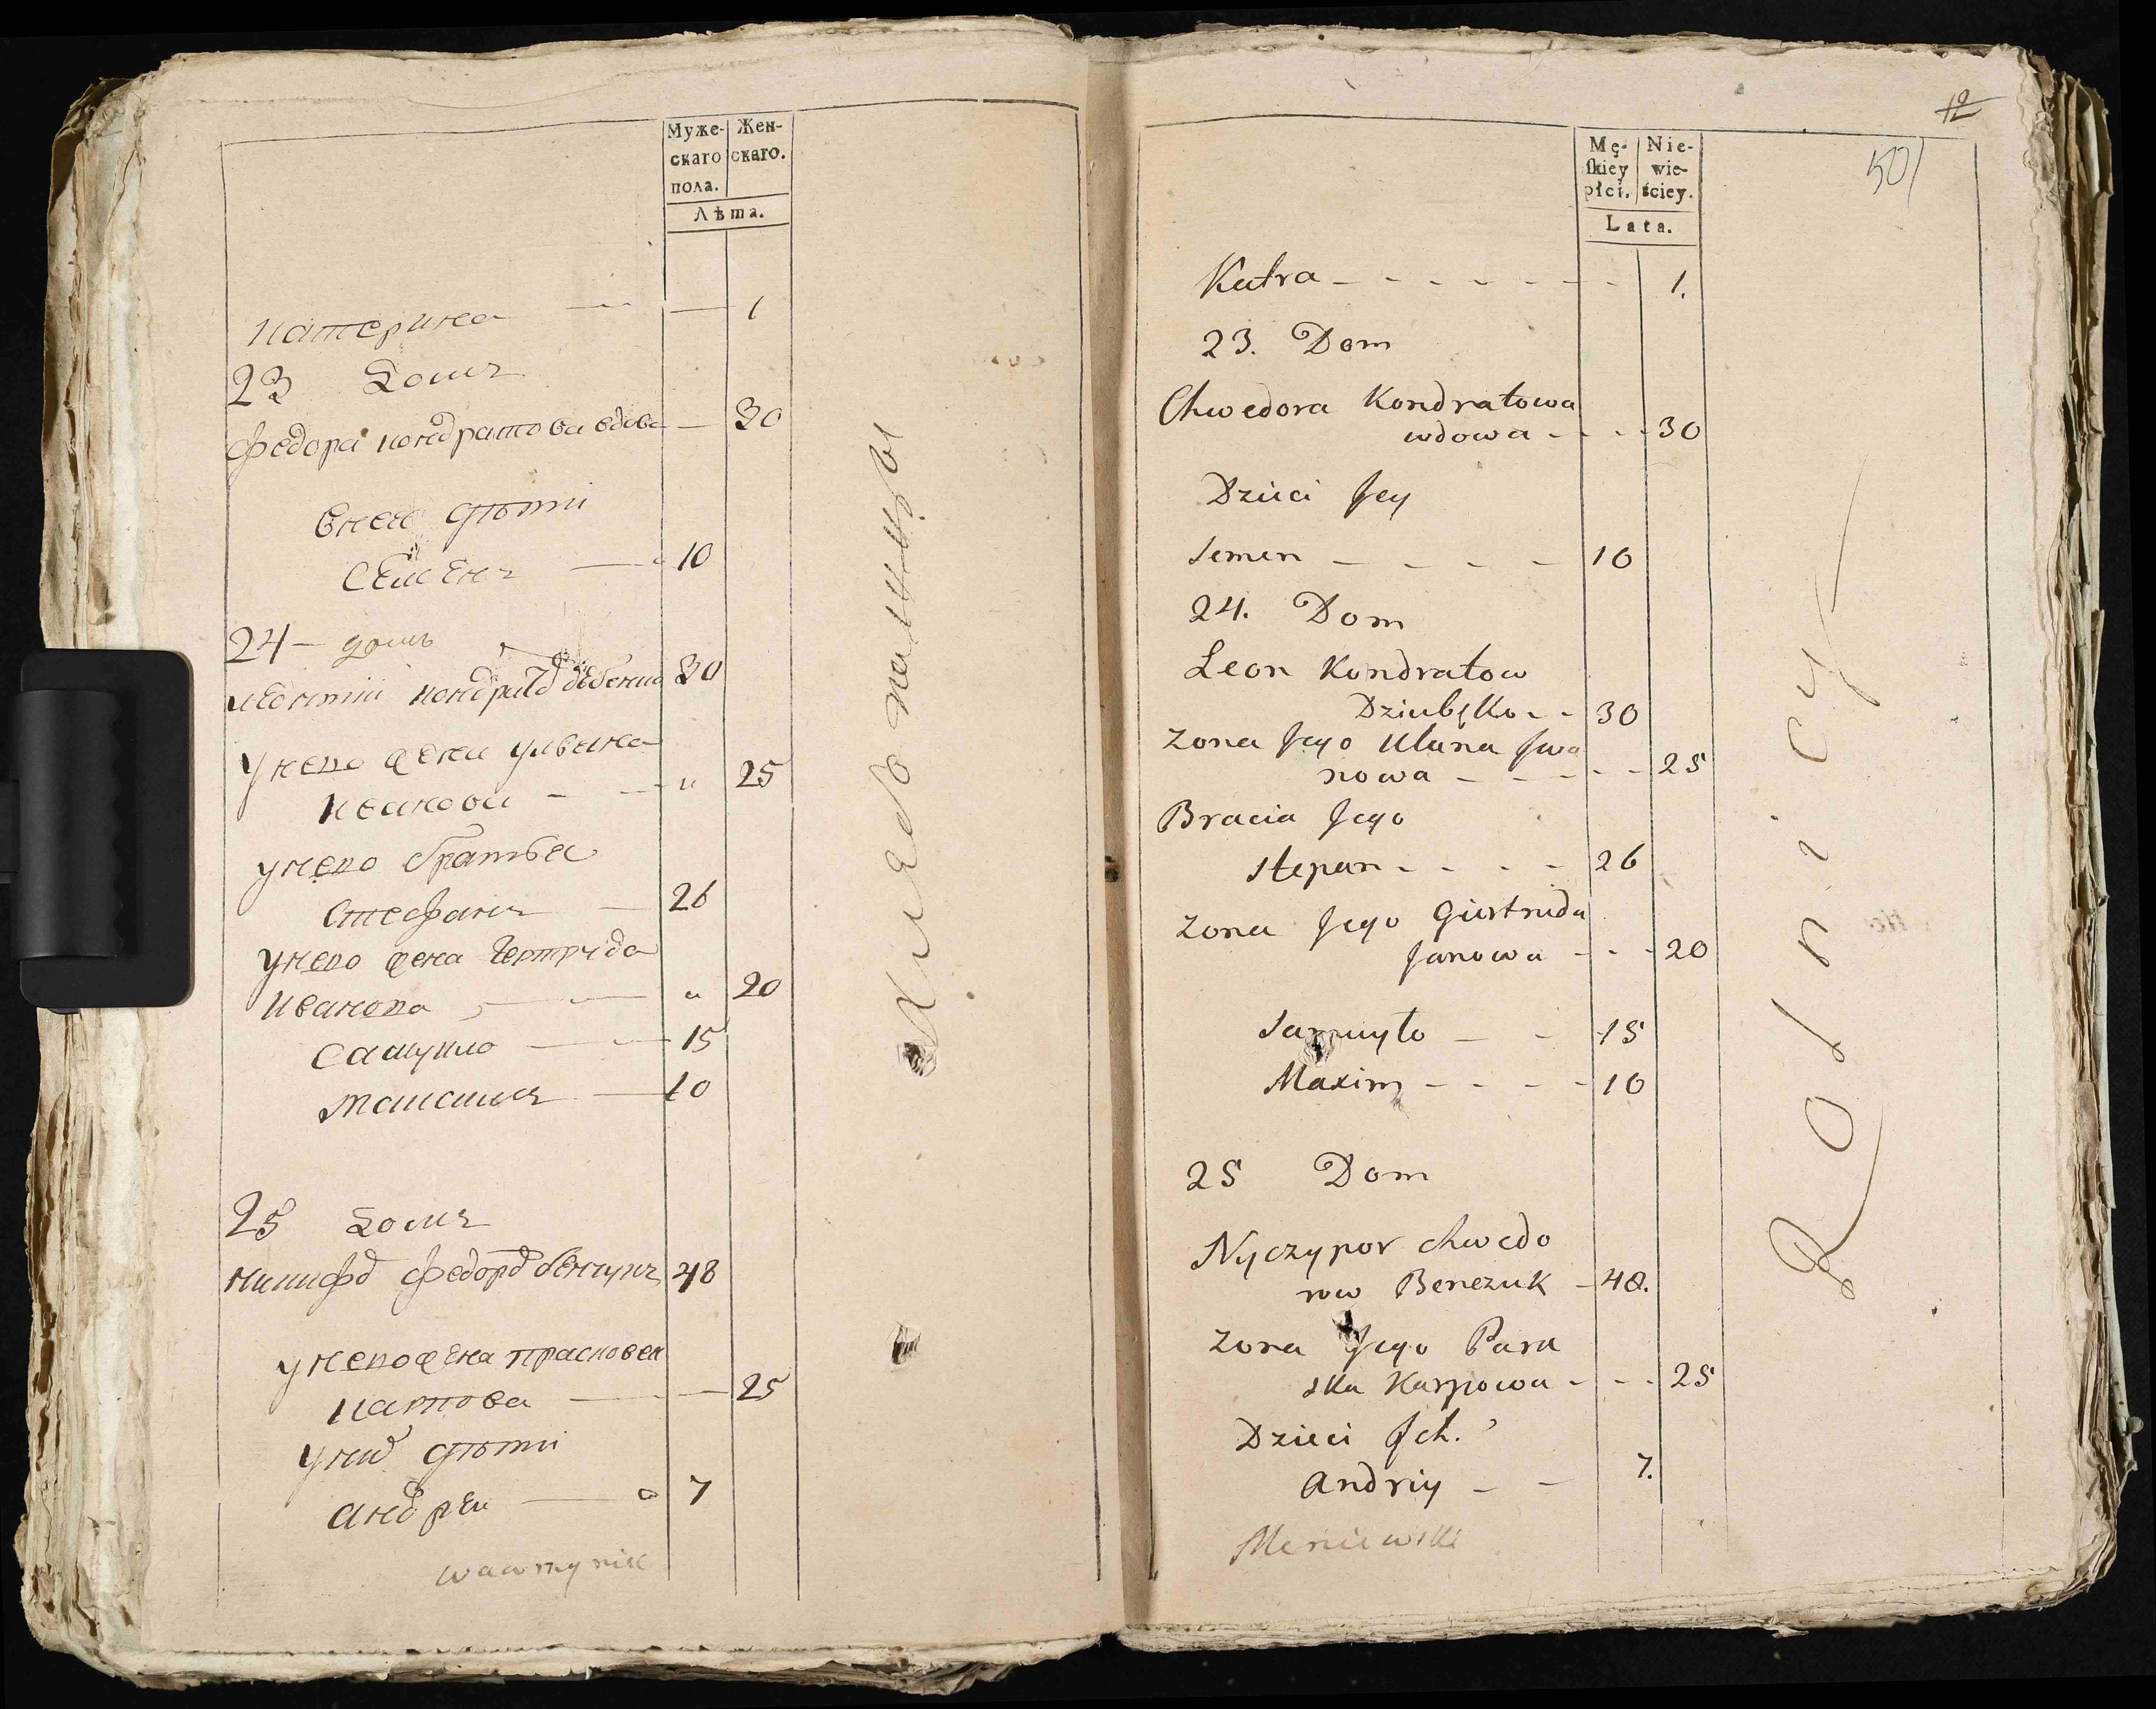 Муже-
скаго
пола.
Жен-
скаго.
Лѣта.
Катерина — 1
23 Домъ
Федора Кондратова вдова — 30
Внея дѣти
Семенъ — 10
24 — домъ
Леонтiи Кондрат 30
Унего жена Улвяна
Иванова — " 25
Унего братья
Стефанъ — 26
Унего жена Гертруда
Иванова — " 20
Самуило — 15
Максимъ — 10
25 Домъ
Никифо Федоро Бенчукъ 48
Унего жена Прасковея
Карпова — 25
Уних дѣти
Андреи — 7
Хлебопашцы
12
501
Mę-
skiey
płci.
Nie-
wie-
ściey.
Lata.
Katra - - - - - - - 1.
23. Dom
Chwedora Kondratowa
wdowa - - - 30
Dzieci Jey
Semen - - - - - 10
24. Dom
Leon Kondratow
Dziubęko - - 30
Zona Jego Ulana Jwa
nowa - - - - - 25
Bracia Jego
Stepan - - - - 26
Zona Jego Giertruda
Janowa - - - 20
Samuyło - - 15
Maxim - - - - 10
25 Dom
Nyczypor Chwedo
row Benczuk - 48.
Zona Jego Para
ska Karpowa - - - 25
Dzieci Jch.
Andriy - - 7.
Rolnicy